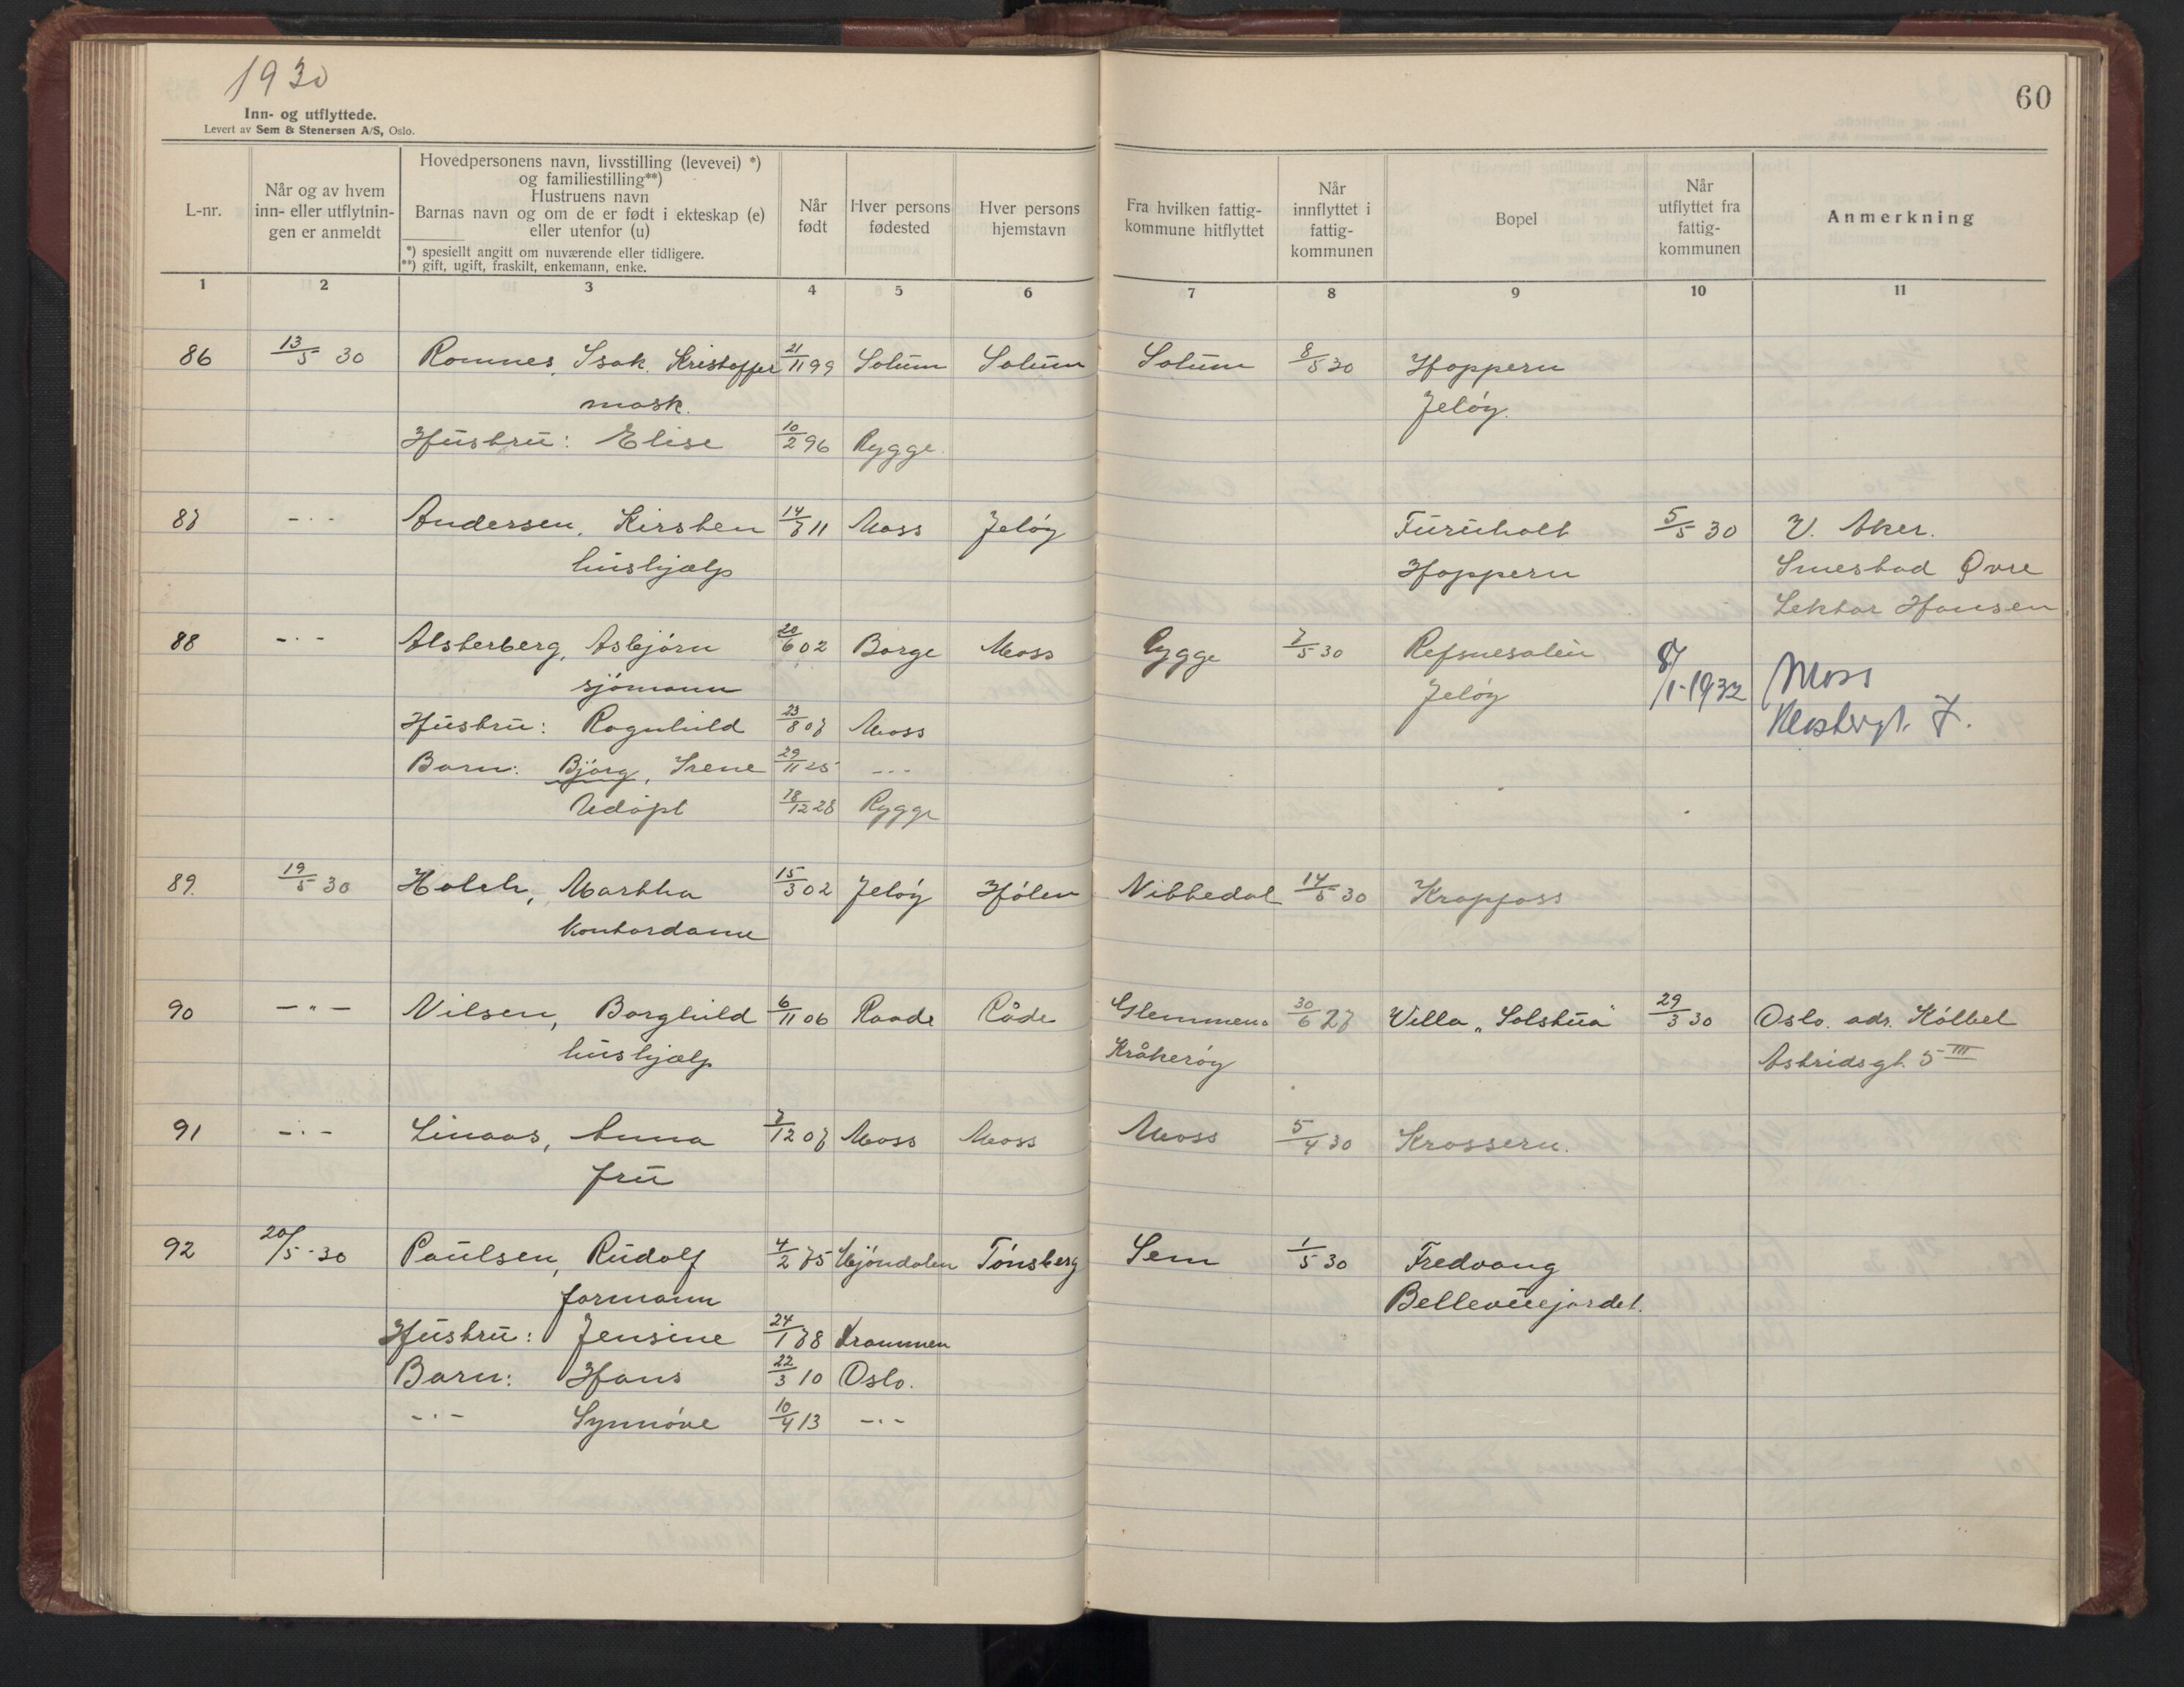 1930
60
Inn- og utflyttede.
Levert av Sem & Stenersen A/S, Oslo.
L-nr.
Når og av hvem inn- eller utflytnin-gen er anmeldt
Hovedpersonens navn, livsstilling (levevei) *)
og familiestilling**)
Hustruens navn
Barnas navn og om de er født i ekteskap (e)
eller utenfor (u)
*) spesiellt angitt om nuværende eller tidligere.
**) gift, ugift, fraskilt, enkemann, enke.
Når født
Hver persons fødested
Hver persons hjemstavn
Fra hvilken fattig-kommune hitflyttet
Når innflyttet i fattig-kommunen
Bopel
Når utflyttet fra fattig-kommunen
Anmerkning
1 2 3 4 5 6 7 8 9 10 11
86 13/5 30 Romnes, Isak. Kristoffer 21/11 99 Solum Solum Solum 8/5 30 Hoppern
mask. Jeløy.
Hustru: Elise 10/2 96 Rygge.
87 -"- Andersen, Kirsten 14/7 11 Moss Jeløy Furuholt 5/5 30 V. Aker.
hushjælp Hoppern Smestad Øvre
Lektor Hansen.
88 -"- Alsterberg, Asbjørn 20/6 02 Borge Moss Rygge 7/5 30 Refsnesalèn 8/1-1932 Moss
sjømann Jeløy Klostergt. 7.
Hustru: Ragnhild 23/8 07 Moss
Barn: Bjørg, Irene 29/11 25 -"-
Udøpt 18/12 28 Rygge
89. 19/5 30 Holch, Martha 15/3 02 Jeløy Hølen Nittedal 14/5 30 Krapfoss
Kontordame
90 -"- Nilsen, Borghild 6/11 06 Raade Råde Glemmen. 30/6 27 Villa "Solstua" 29/3 30 Oslo. adr. Kølbel
hushjælp Kråkerøy Astridsgt. 5 III
91 -"- Linaas, Anna 7/12 07 Moss Moss Moss 5/4 30 Krossern.
fru
92 20/5-30 Paulsen, Rudolf 4/2 75 Mjøndalen Tønsberg Sem 1/5 30 Fredvang
formann Bellevuejordet.
Hustru: Jensine 24/1 78 Drammen
Barn: Hans 22/3 10 Oslo.
-"- Synnøve 10/4 13 -"-